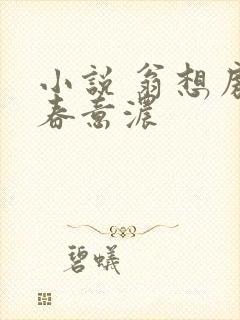 小說 翁想
春意濃
碧蟻